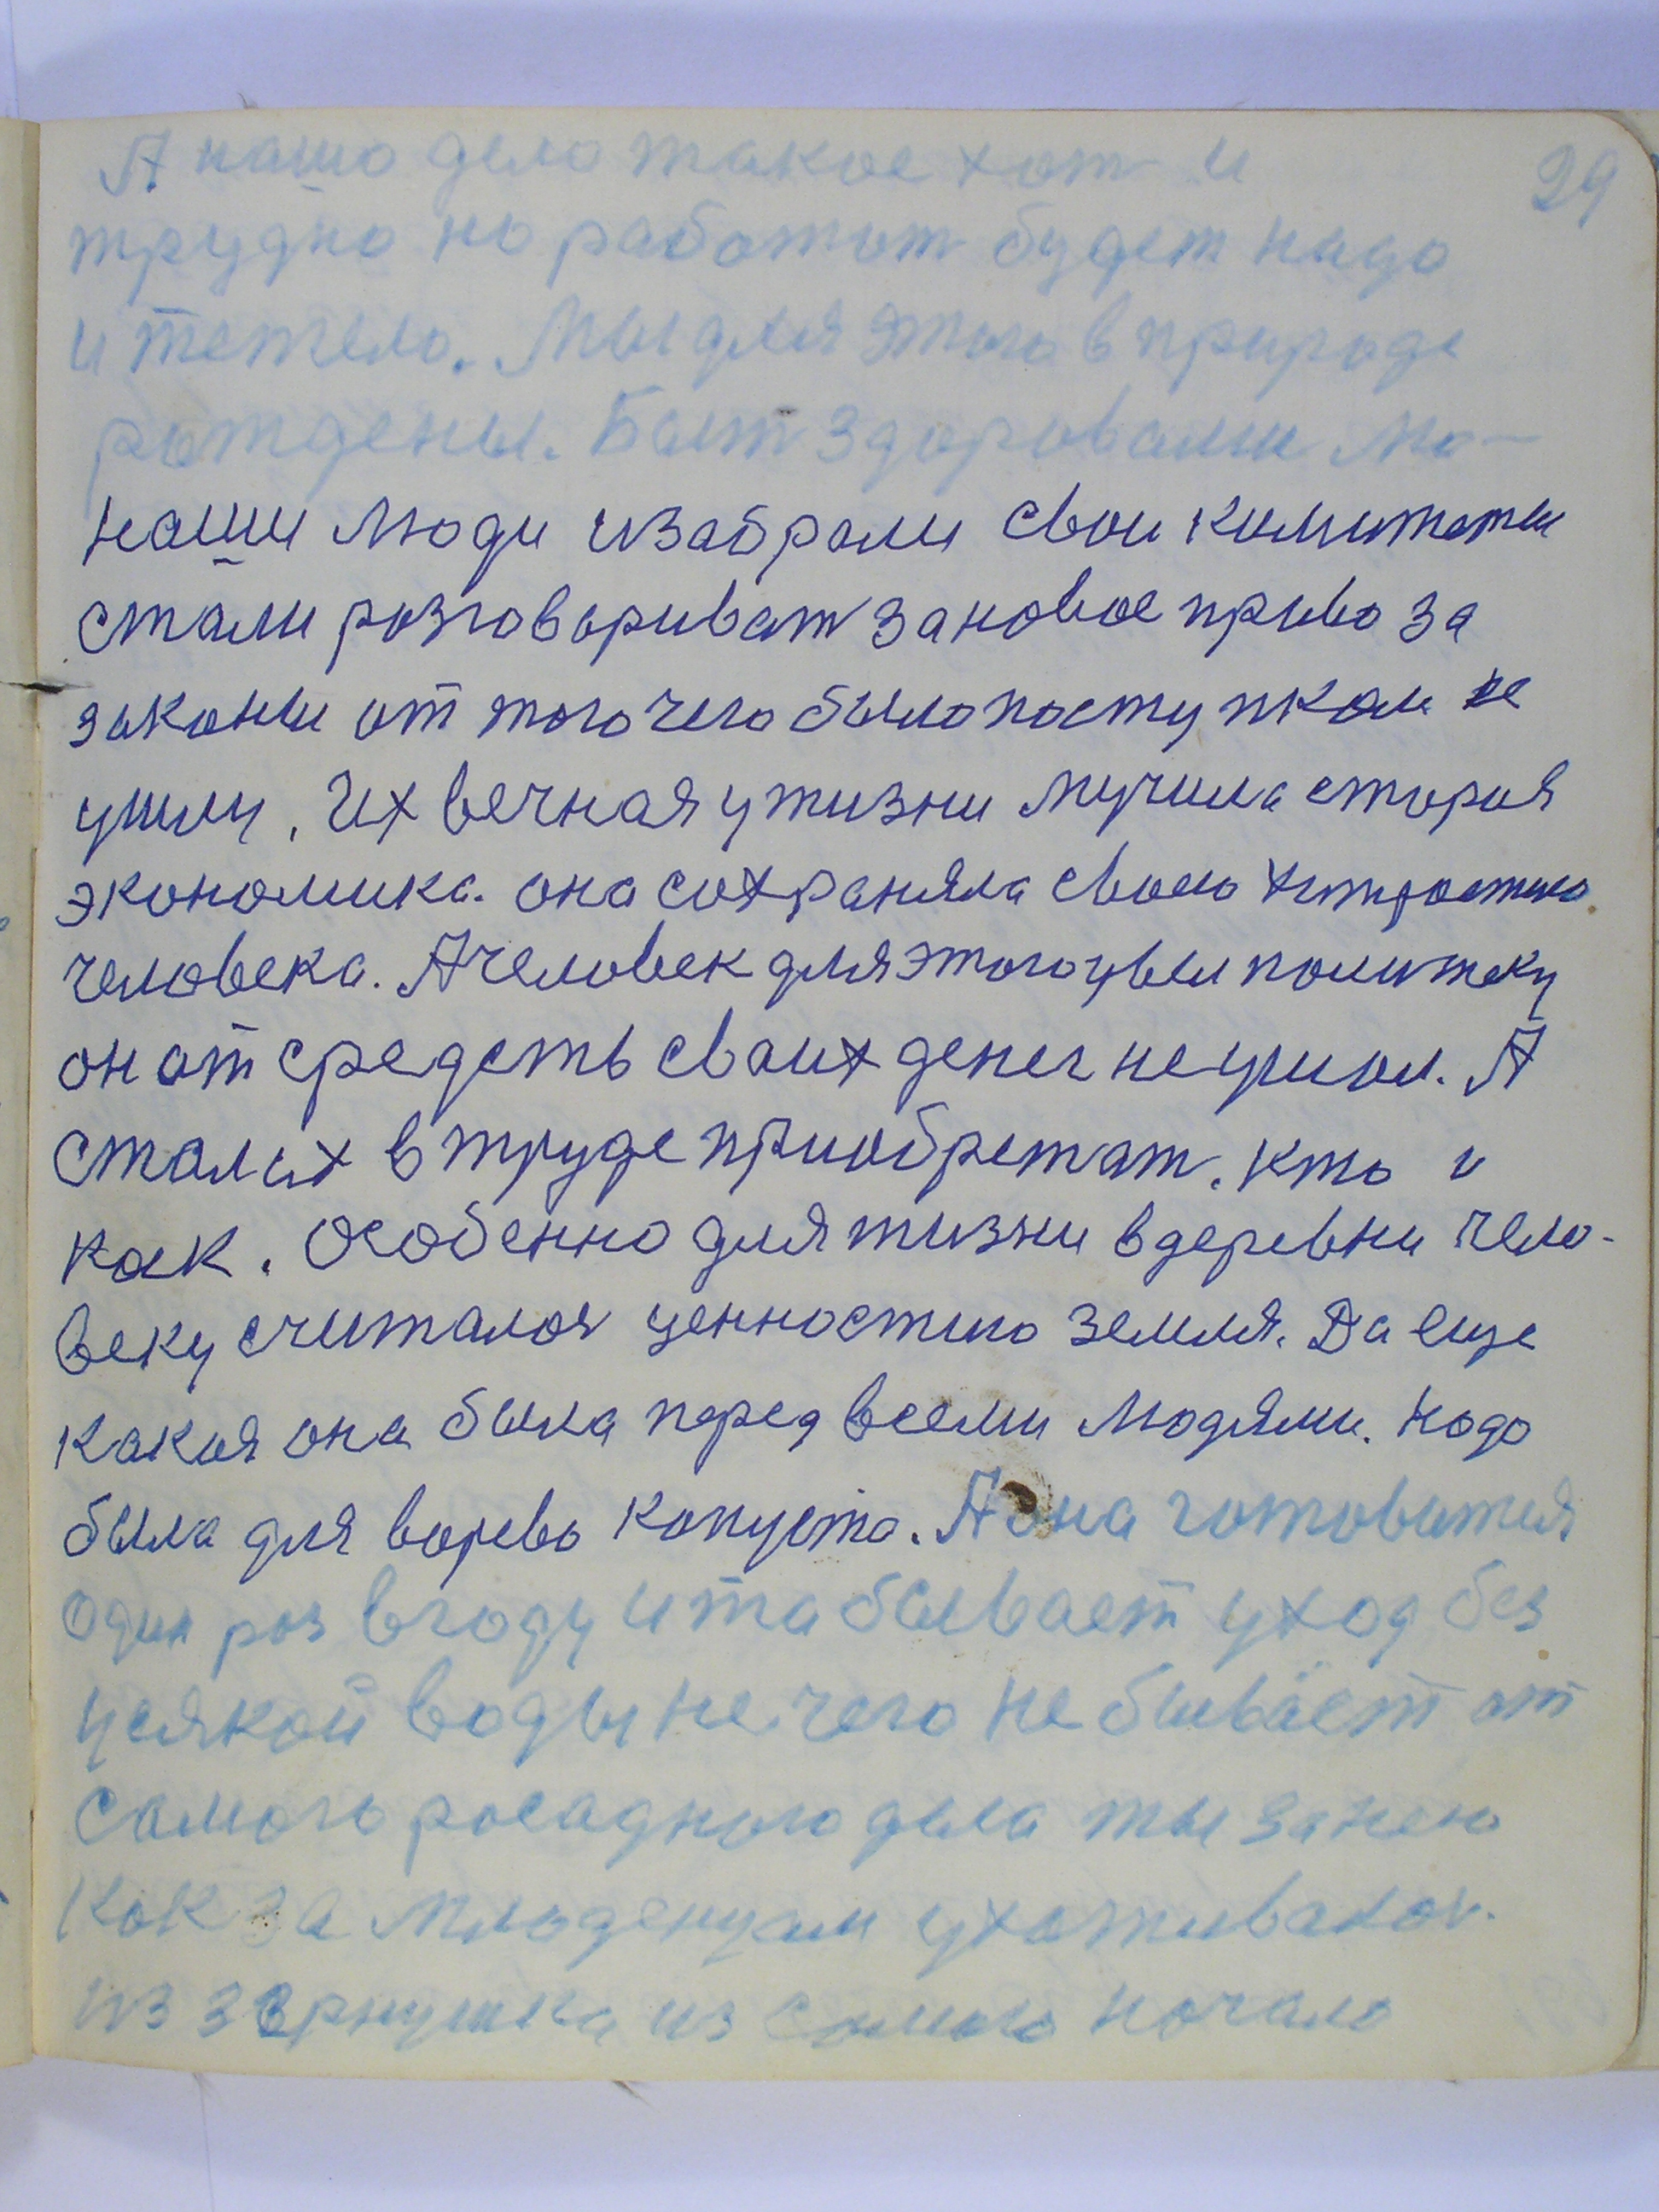 29
А нашо дело такое хот и
трудно но работат будет надо
и тежело. Мы для этого в природе
рождены. Быт здоровыми мо-
наши люди изабрали свои комитеты
стали розговариват за новое право за
законы от того чего было поступками не
ушли. Их вечная у жизни мучила старая
экономика. она сохраняла свою хитростию
человека. А человек для этого увел политеку
он от средств своих денег не ушол. А
стал их в труде приобретат. кто и
как. Особенно для жизни в деревни чело-
веку считалоя ценностию земля. Да еще
какая она была перед всеми людями. Надо
была для варева капуста. А она готовится
один роз в году и та бывает уход без
усякой воды не чего не бывает от
самого росадного дела ты за нею
как за младенцам ухаживалоя.
из зернушка из самого начало